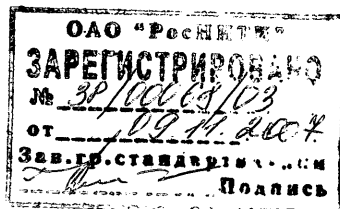 ОАО "РосНИТИ"
ЗАРЕГИСТРИРОВАНО
№ 38/00068/03
от 09.11.2007
Зав.гр.стандартизации
Подпись